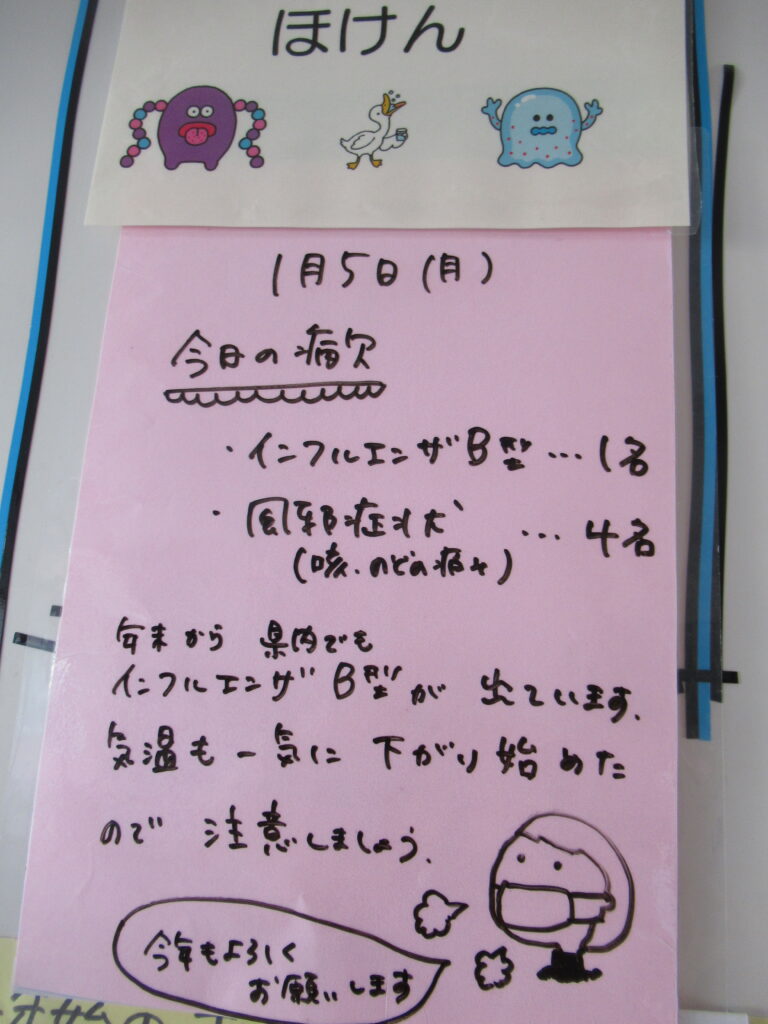 ほけん
1月5日(月)
今日の病欠
・インフルエンザB型…1名
・風邪症状 …4名
(咳・のどの痛み)
年末から 県内でも
インフルエンザB型が 出ています。
気温も一気に 下がり始めた
ので 注意しましょう。
今年もよろしく
お願いします